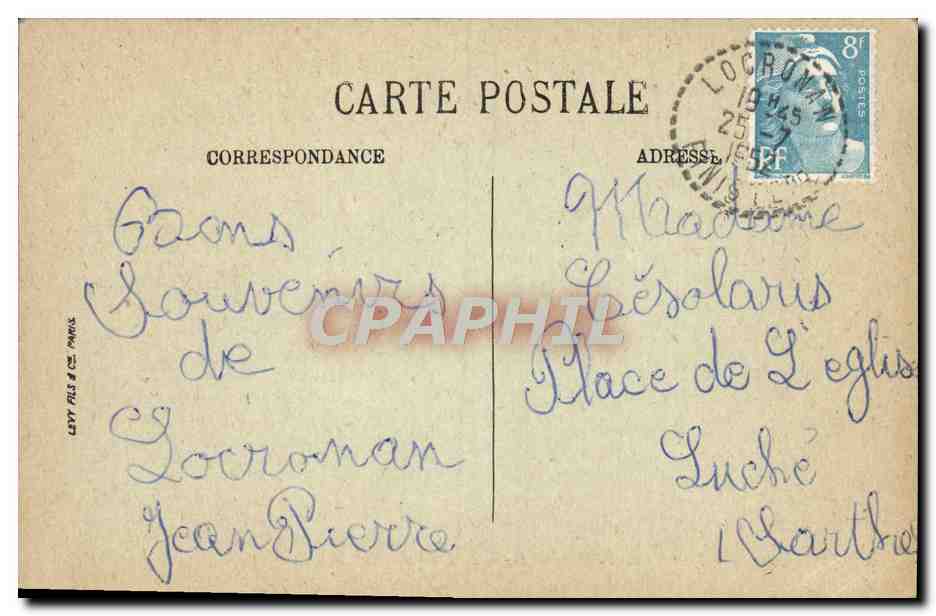 CARTE POSTALE
CORRESPONDANCE
ADRESSE
8f
POSTES
RF
LOCRONAN
19 H45
25 -7
195
FINISTERE
Bons
Souvenirs
de
Locronan
Jean Pierre
Madame
Place de L'eglise
Luché
Sarthe
LEVY FILS & Cie. PARIS.
CPAPHIL